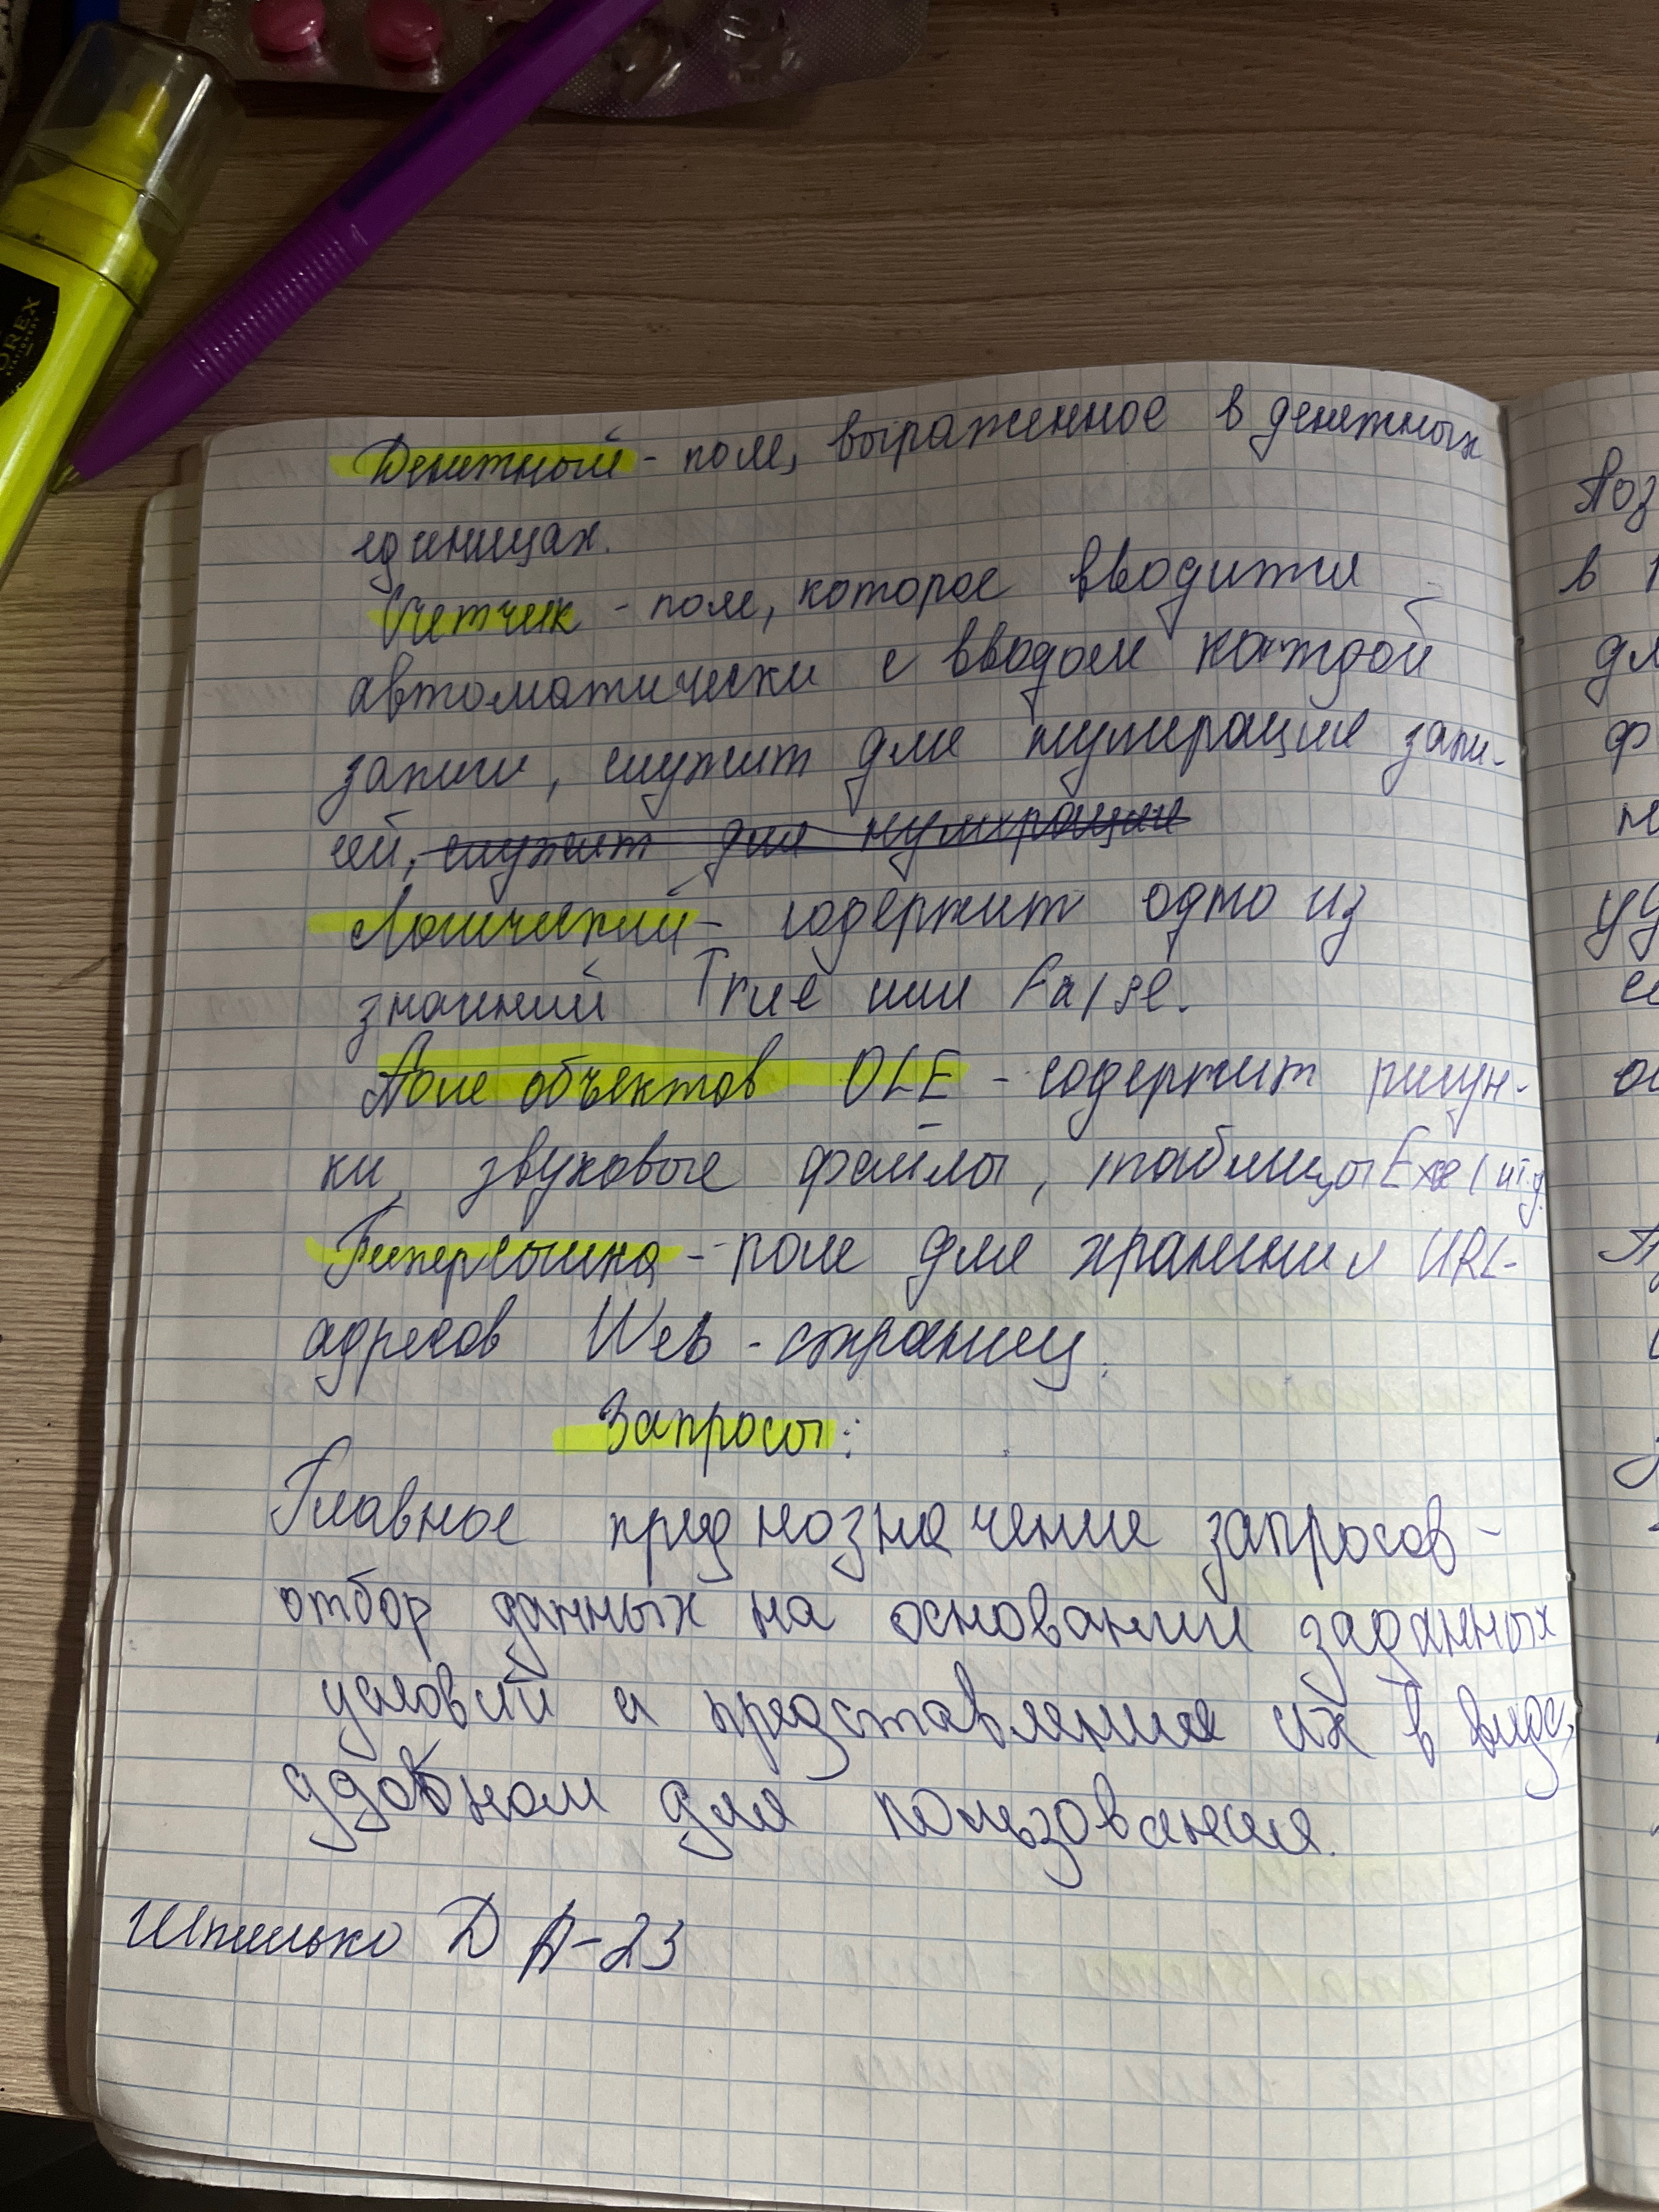 Денежный - поле, выраженное в денежных
единицах.
Счетчик - поле, которое вводится
автоматически с вводом каждой
записи, служит для нумерации запи-
сей, служит для нумерации
Логический - содержит одно из
значений True или False.
Поле объектов OLE - содержит рисун-
ки, звуковые файлы, таблицы Excel и т.д.
Гиперссылка - поле для хранения URL-
адресов Web - страниц.
Запросы:
Главное предназначение запросов -
отбор данных на основании заданных
условий и представление их в виде,
удобном для пользования.
Шпилько Д А-23
OREX
STATIONERY
Поз
в
дл
ф
уд